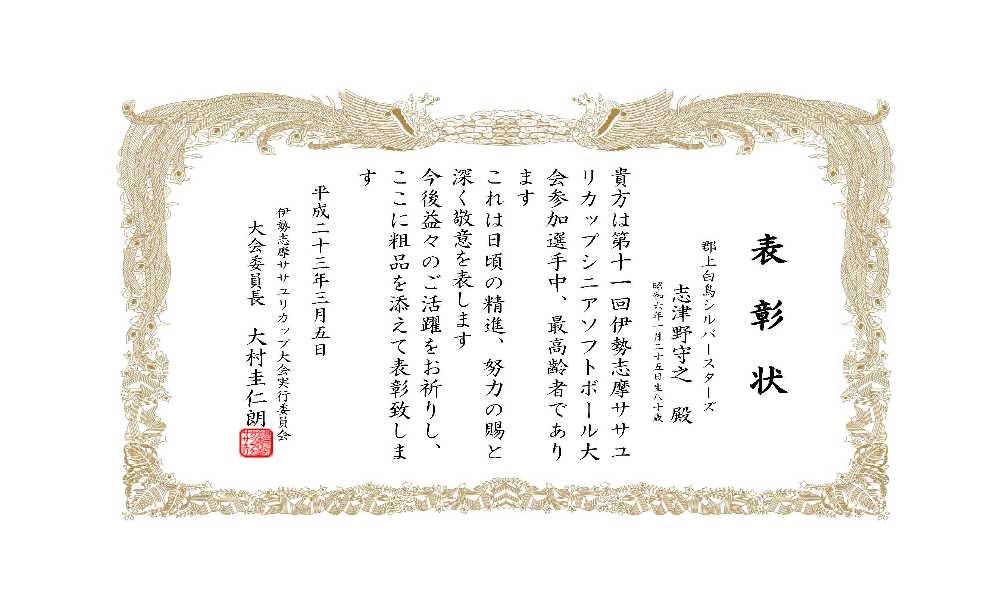 表彰状
郡上白鳥シルバースターズ
志津野守之 殿
昭和六年一月二十五日生八十歳
貴方は第十一回伊勢志摩ササユ
リカップシニアソフトボール大
会参加選手中、最高齢者であり
ます
これは日頃の精進、努力の賜と
深く敬意を表します
今後益々のご活躍をお祈りし、
ここに粗品を添えて表彰致しま
す
平成二十三年三月五日
伊勢志摩ササユリカップ大会実行委員会
大会委員長 大村圭仁朗